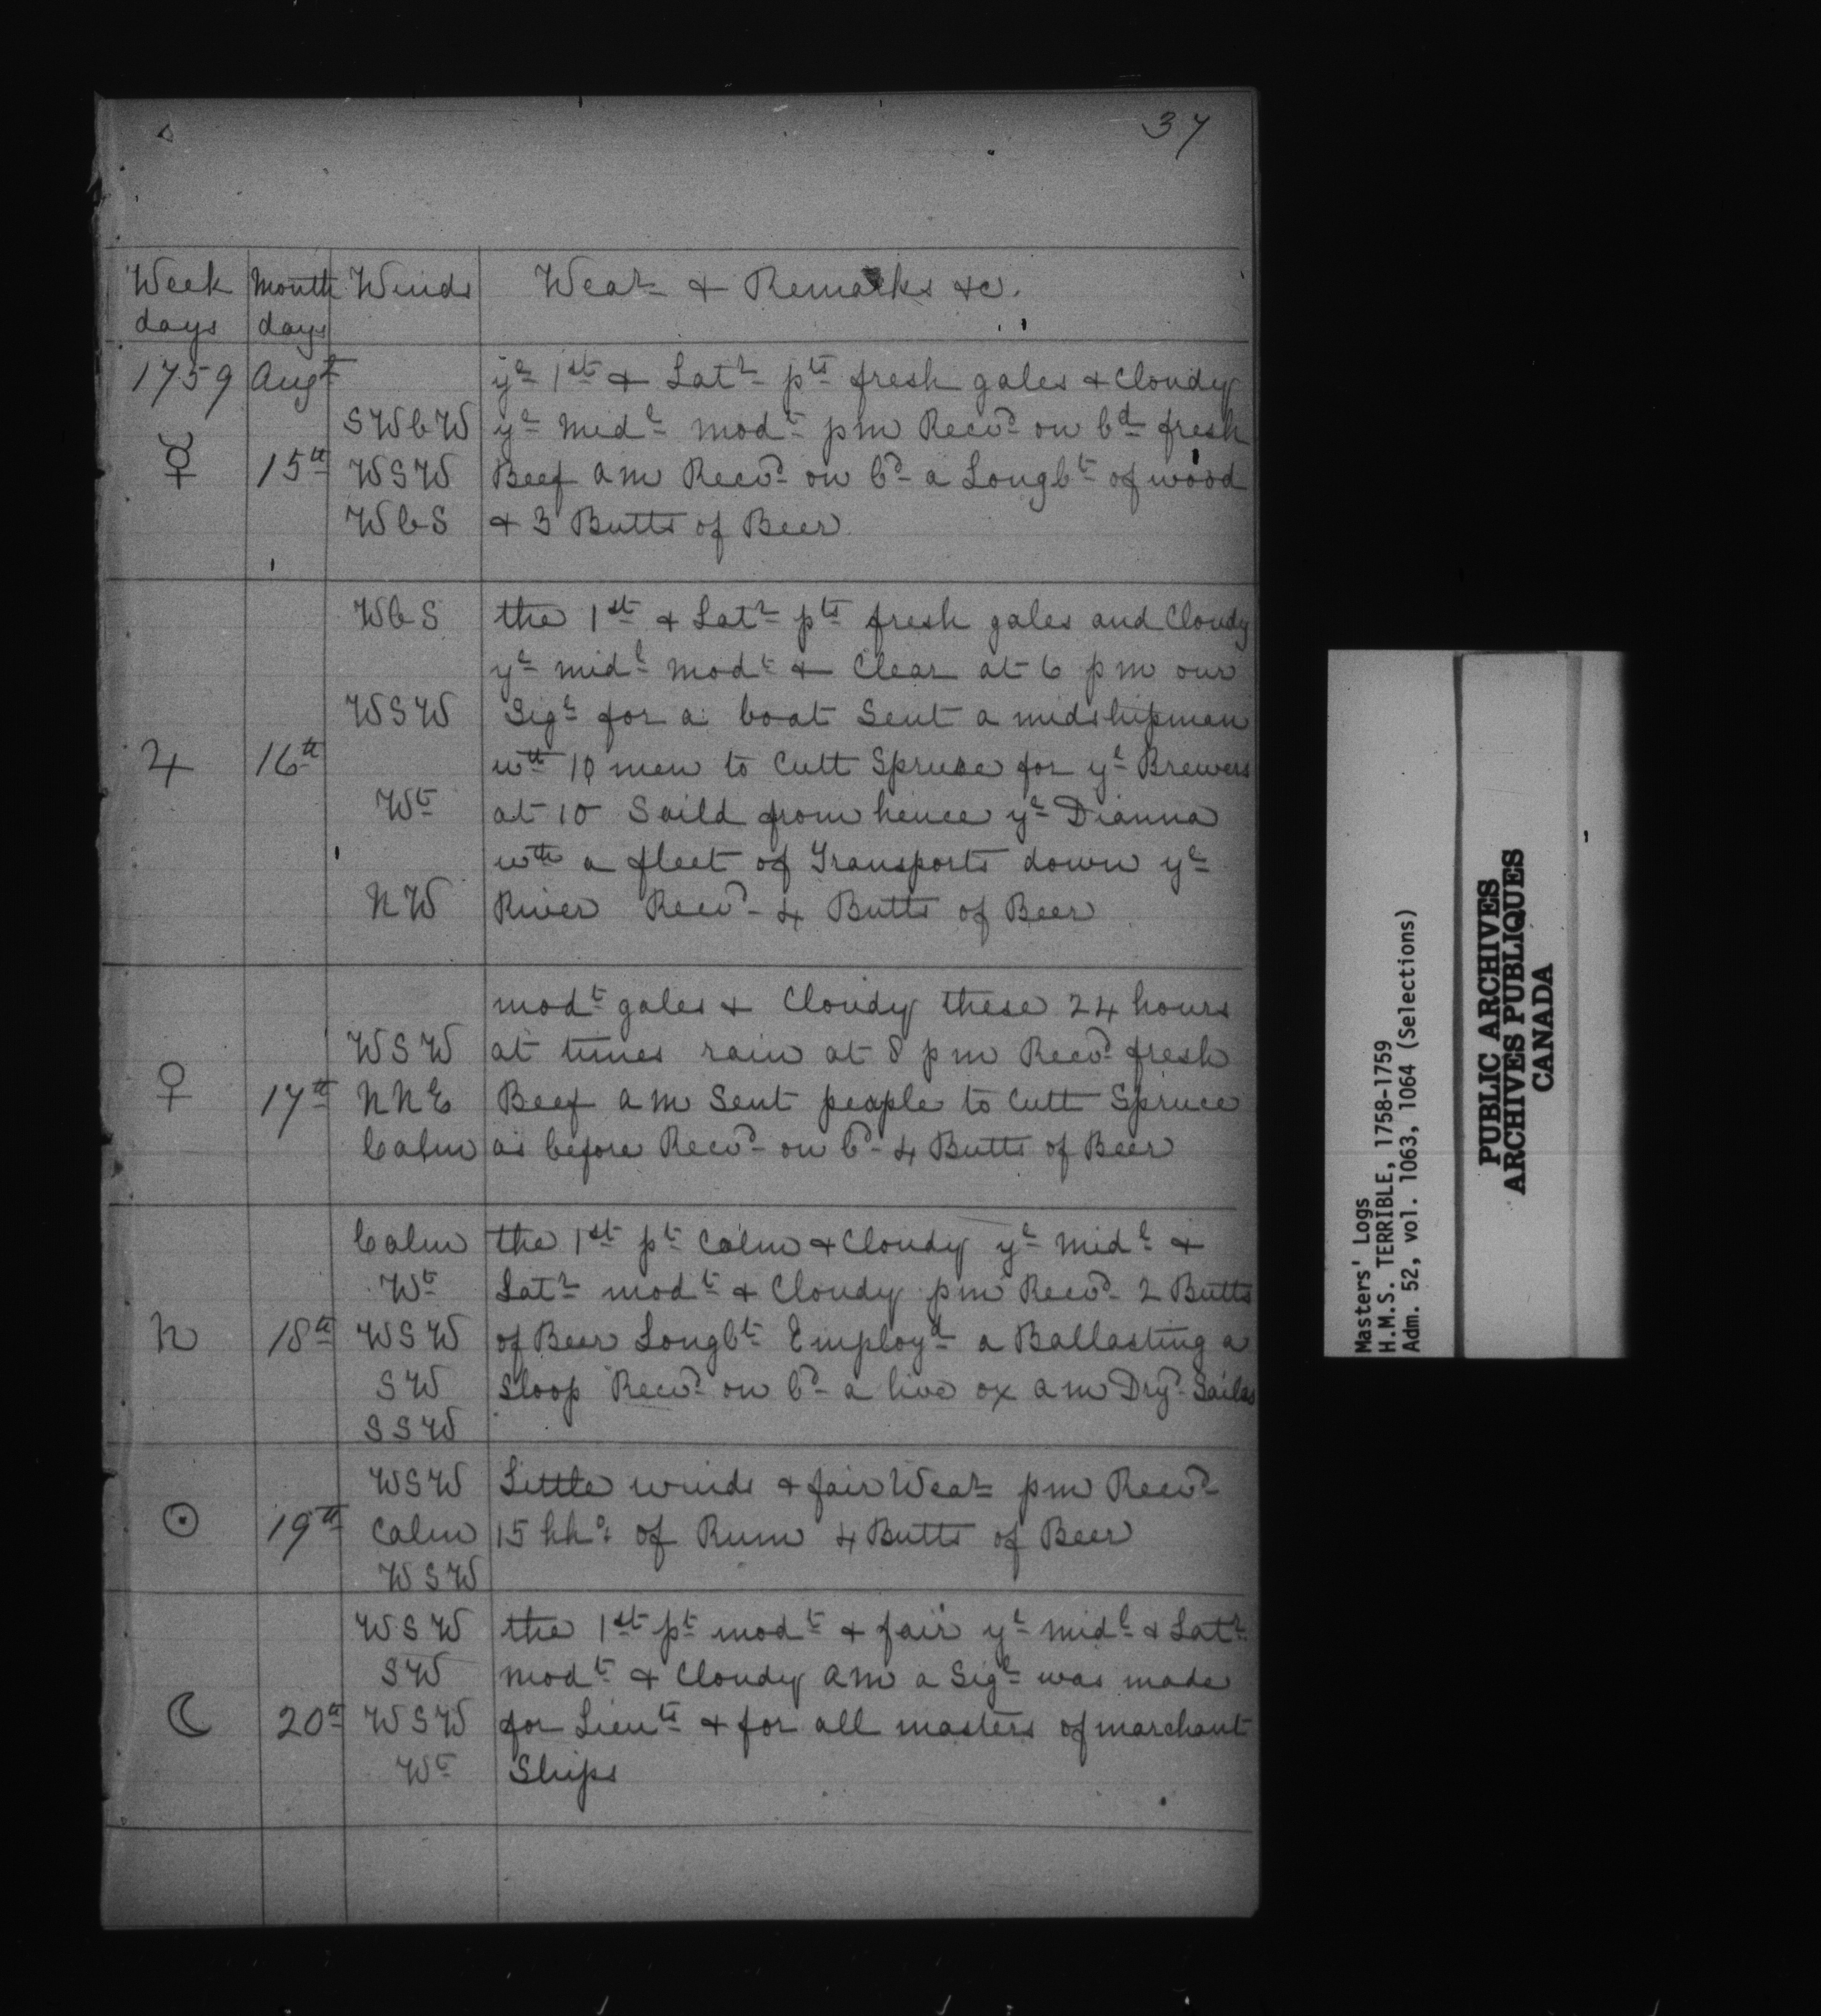 37
Week days | Month days | Winds | Wea^r & Remarks &c.
1759 | Aug^t | | y^e 1^st & Lat^r p^ts fresh gales & Cloudy
SWbW | y^e Mid^l mod^t pm Recv^d on b^d fresh
☿ | 15^th | WSW | Beef am Recv^d on b^d a Longb^t of wood
WbS | & 3 Butts of Beer
WbS | the 1^st & Lat^r p^ts fresh gales and Cloudy
y^e mid^l mod^t & Clear at 6 pm our
WSW | Sig^l for a boat Sent a midshipman
♃ | 16^th | w^th 10 men to Cutt Spruce for y^e Brewers
W^t | at 10 Saild from hence y^e Dianna
w^th a fleet of Transports down y^e
NW | River Recv^d 4 Butts of Beer
mod^t gales & Cloudy these 24 hours
WSW | at times rain at 8 pm Recv^d fresh
♀ | 17^th | NNE | Beef am Sent people to Cutt Spruce
Calm | as before Recv^d on b^d 4 Butts of Beer
Calm | the 1^st p^t Calm & Cloudy y^e Mid^l &
W^t | Lat^r mod^t & Cloudy pm Recv^d 2 Butts
♄ | 18^th | WSW | of Beer Longb^t Employ^d a Ballasting a
SW | Sloop Recv^d on b^d a live ox am Dry^d Sailes
SSW
WSW | Little winds & fair Wea^r pm Recv^d
☉ | 19^th | Calm | 15 hh^s of Rum 4 Butts of Beer
WSW
WSW | the 1^st p^t mod^t & fair y^e mid^l & Lat^r
SW | mod^t & Cloudy am a Sig^l was made
☾ | 20^th | WSW | for Lieu^ts & for all masters of marchant
W^t | Ships
Masters' Logs
H.M.S. TERRIBLE, 1758-1759
Adm. 52, vol. 1063, 1064 (Selections)
PUBLIC ARCHIVES
ARCHIVES PUBLIQUES
CANADA